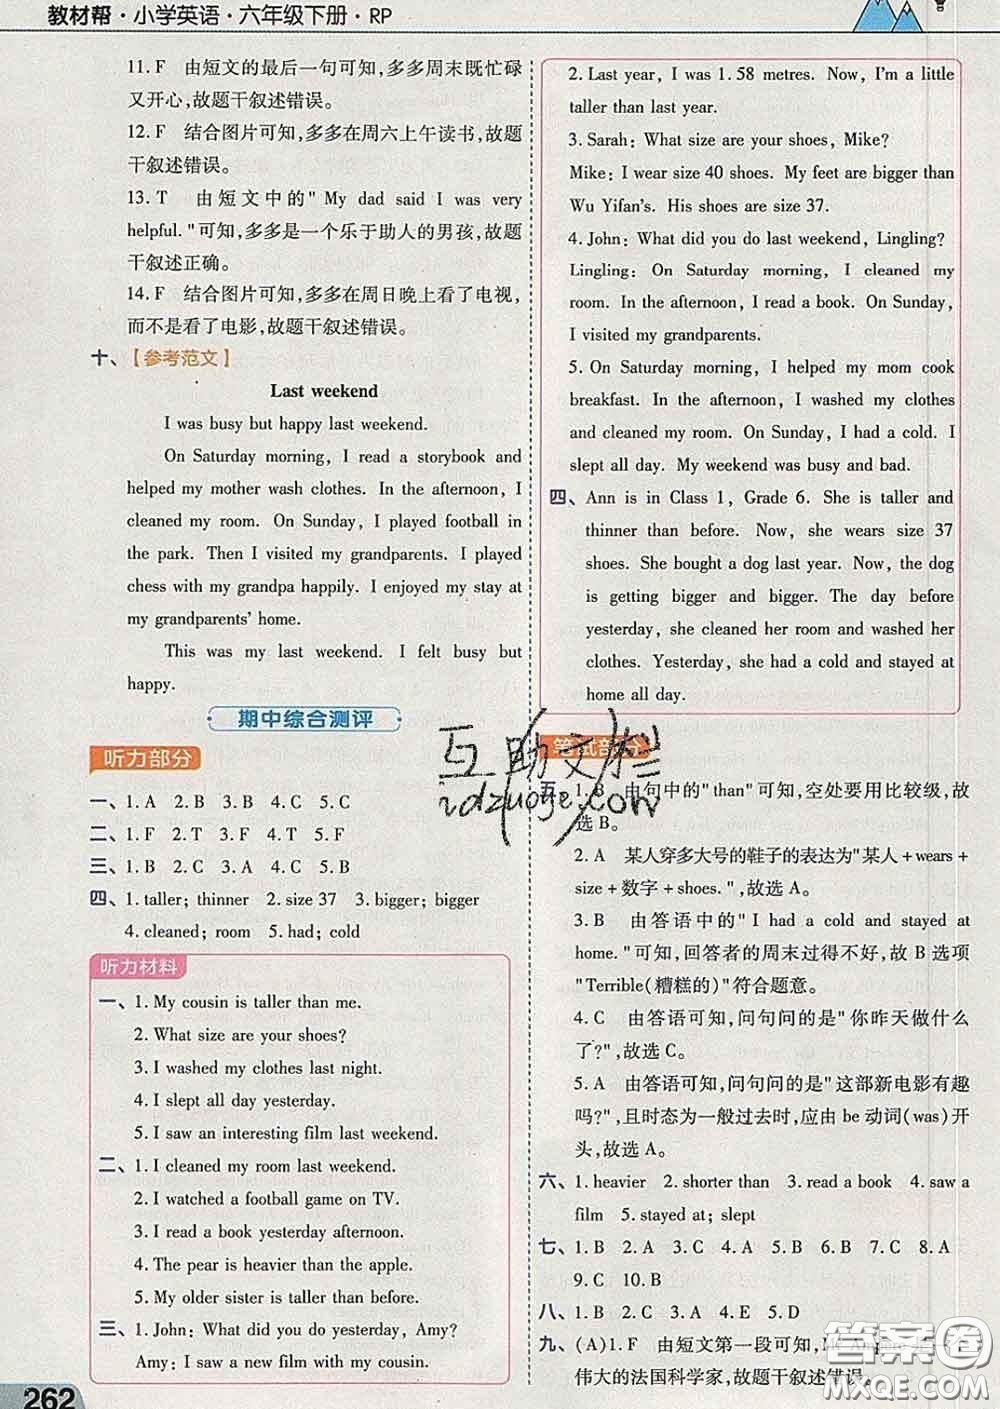 教材帮·小学英语·六年级下册·RP
11. F 由短文的最后一句可知,多多周末既忙碌
又开心,故题干叙述错误。
12. F 结合图片可知,多多在周六上午读书,故题
干叙述错误。
13. T 由短文中的" My dad said I was very
helpful. "可知,多多是一个乐于助人的男孩,故题
干叙述正确。
14. F 结合图片可知,多多在周日晚上看了电视,
而不是看了电影,故题干叙述错误。
十、【参考范文】
Last weekend
I was busy but happy last weekend.
On Saturday morning, I read a storybook and
helped my mother wash clothes. In the afternoon, I
cleaned my room. On Sunday, I played football in
the park. Then I visited my grandparents. I played
chess with my grandpa happily. I enjoyed my stay at
my grandparents' home.
This was my last weekend. I felt busy but
happy.
期中综合测评
听力部分
一、1. A 2. B 3. B 4. C 5. C
二、1. F 2. T 3. F 4. T 5. F
三、1. B 2. C 3. A 4. B 5. C
四、1. taller; thinner 2. size 37 3. bigger; bigger
4. cleaned; room 5. had; cold
听力材料
一、1. My cousin is taller than me.
2. What size are your shoes?
3. I washed my clothes last night.
4. I slept all day yesterday.
5. I saw an interesting film last weekend.
二、1. I cleaned my room last weekend.
2. I watched a football game on TV.
3. I read a book yesterday afternoon.
4. The pear is heavier than the apple.
5. My older sister is taller than before.
三、1. John: What did you do yesterday, Amy?
Amy: I saw a new film with my cousin.
262
2. Last year, I was 1. 58 metres. Now, I'm a little
taller than last year.
3. Sarah: What size are your shoes, Mike?
Mike: I wear size 40 shoes. My feet are bigger than
Wu Yifan's. His shoes are size 37.
4. John: What did you do last weekend, Lingling?
Lingling: On Saturday morning, I cleaned my
room. In the afternoon, I read a book. On Sunday,
I visited my grandparents.
5. On Saturday morning, I helped my mom cook
breakfast. In the afternoon, I washed my clothes
and cleaned my room. On Sunday, I had a cold. I
slept all day. My weekend was busy and bad.
四、Ann is in Class 1, Grade 6. She is taller and
thinner than before. Now, she wears size 37
shoes. She bought a dog last year. Now, the dog
is getting bigger and bigger. The day before
yesterday, she cleaned her room and washed her
clothes. Yesterday, she had a cold and stayed at
home all day.
笔试部分
五、1. B 由句中的" than"可知,空处要用比较级,故
选 B。
2. A 某人穿多大号的鞋子的表达为"某人 + wears +
size + 数字 + shoes. ",故选 A。
3. B 由答语中的" I had a cold and stayed at
home. "可知,回答者的周末过得不好,故 B 选项
"Terrible(糟糕的)"符合题意。
4. C 由答语可知,问句问的是"你昨天做什么
了?",故选 C。
5. A 由答语可知,问句问的是"这部新电影有趣
吗?",且时态为一般过去时,应由 be 动词(was)开
头,故选 A。
六、1. heavier 2. shorter than 3. read a book 4. saw a
film 5. stayed at; slept
七、1. B 2. A 3. C 4. C 5. B 6. B 7. C 8. A
9. C 10. B
八、1. B 2. C 3. A 4. E 5. D
九、(A)1. F 由短文第一段可知,
伟大的法国科学家,故题干叙述错误。
互助文栏
idzuoye.com
答案卷
MXQE.COM